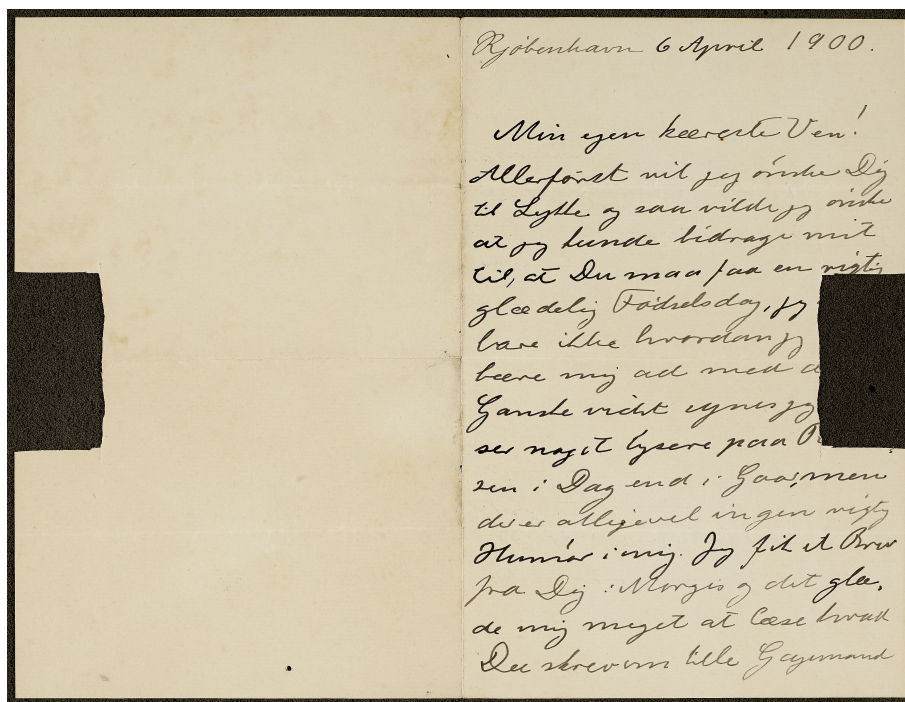 Kjøbenhavn 6 April 1900.
Min egen kæreste Ven!
Allerførst vil jeg ønske Dig
til Lykke og saa vilde jeg ønske
at jeg kunde bidrage mit
til, at Du maa faa en rigtig
glædelig Fødselsdag, jeg
bare ikke hvordan jeg
bære mig ad med
Ganske vidst synes jeg
ser noget lysere paa
sen i Dag end i Gaar, men
der er alligevel ingen rigtig
Humør i mig. Jeg fik et Brev
fra Dig i Morges og det glæ-
de mig meget at læse hvad
Du skrev om lille